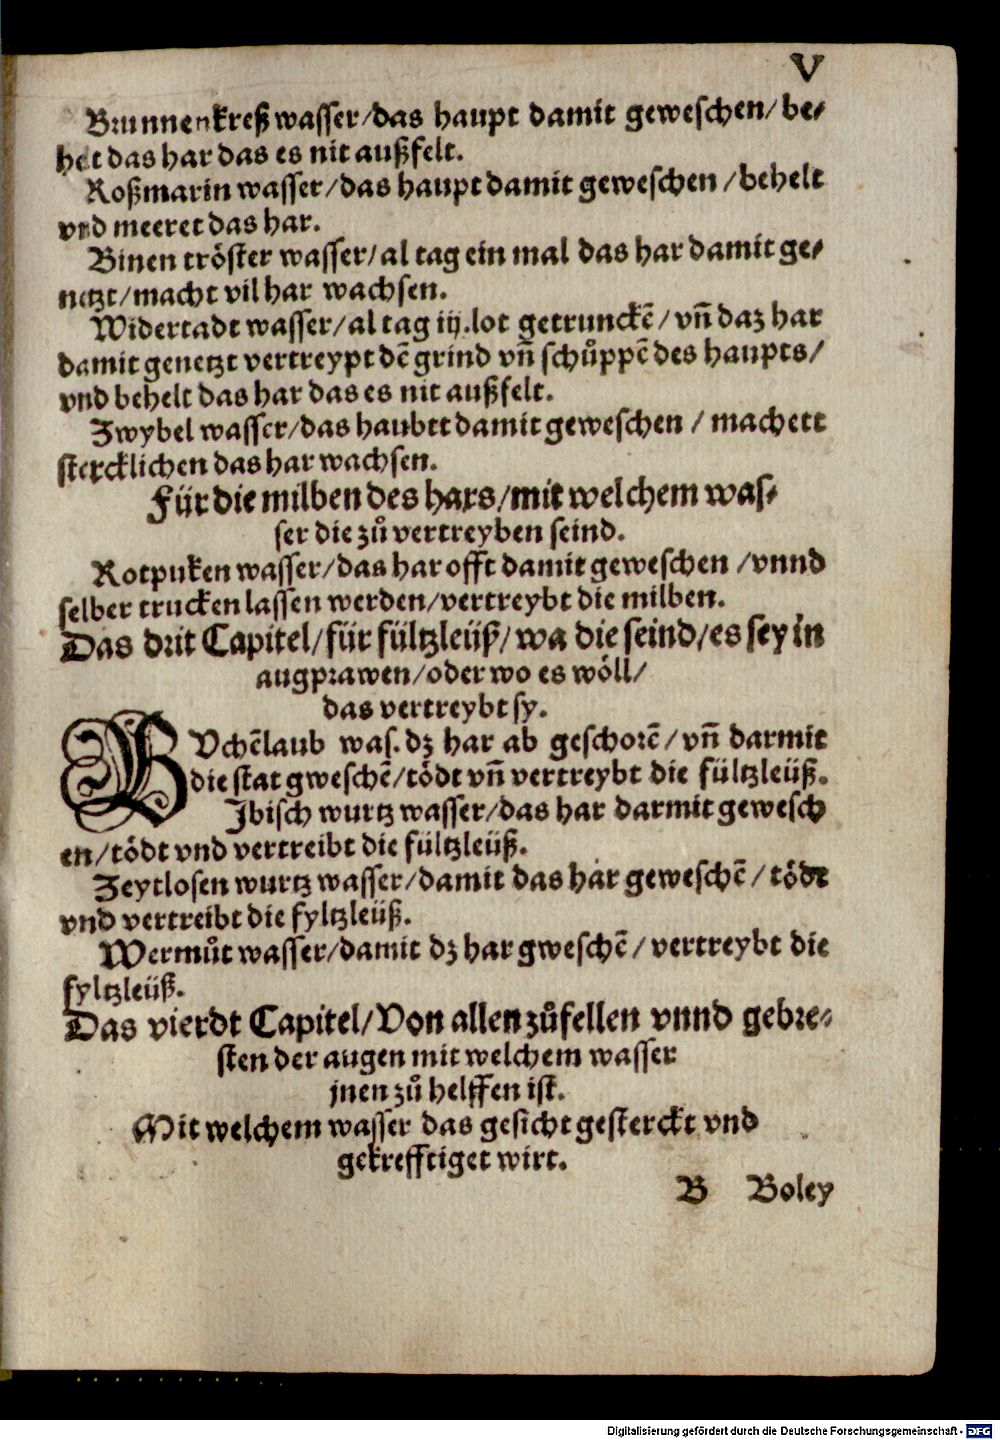 V
Brunnenkreß wasser/das haupt damit geweschen/ be-
helt das har das es nit außfelt.
Roßmarin wasser/das haupt damit geweschen /behelt
vnd meeret das har.
Binen tröster wasser/al tag ein mal das har damit ge-
netzt/macht vil har wachsen.
Widertadt wasser/al tag iij.lot getrunckē/vn̄ daz har
damit genetzt vertreypt dē grind vn̄ schůppē des haupts/
vnd behelt das har das es nit außfelt.
Zwybel wasser/das haubtt damit geweschen / machett
stercklichen das har wachsen.
Für die milben des hars/mit welchem was-
ser die zů vertreyben seind.
Rotpuken wasser/das har offt damit geweschen /vnnd
selber trucken lassen werden/vertreybt die milben.
Das drit Capitel/für fültzleüß/wa die seind/es sey in
augprawen/oder wo es wöll/
das vertreybt sy.
BVchēlaub was. dz har ab geschorē/vn̄ darmit
die stat gweschē/tödt vn̄ vertreybt die fültzleüß.
Ibisch wurtz wasser/das har darmit gewesch
en/tödt vnd vertreibt die fültzleüß.
Zeytlosen wurtz wasser/damit das har geweschē/tödt
vnd vertreibt die fyltzleüß.
Wermůt wasser/damit dz har gweschē/vertreybt die
fyltzleüß.
Das vierdt Capitel/Von allen zůfellen vnnd gebre-
sten der augen mit welchem wasser
jnen zů helffen ist.
Mit welchem wasser das gesicht gesterckt vnd
gekrefftiget wirt.
B Boley
Digitalisierung gefördert durch die Deutsche Forschungsgemeinschaft - DFG